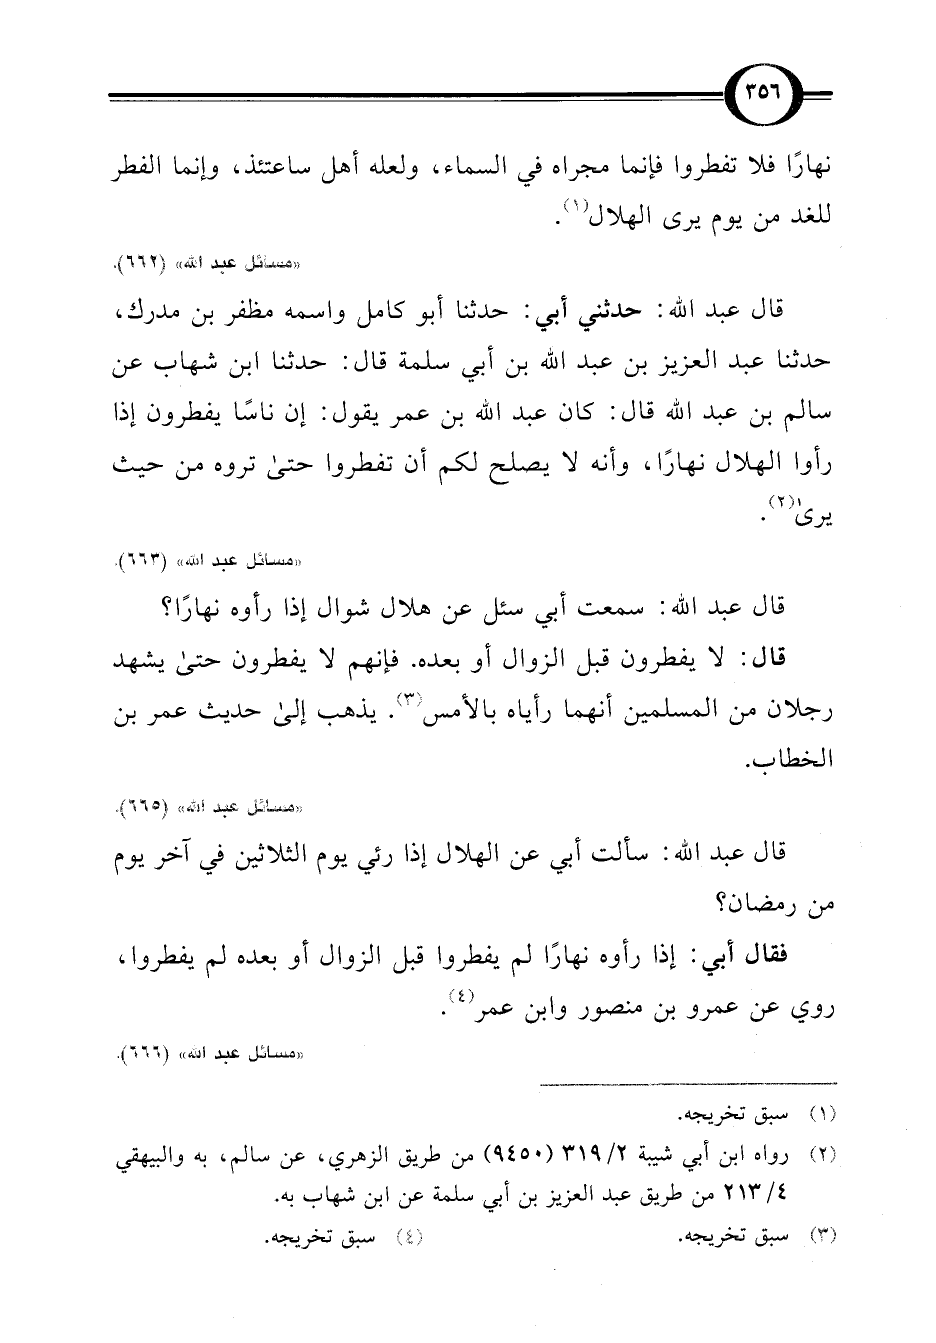 ٣٥٦
نهارًا فلا تفطروا فإنما مجراه في السماء، ولعله أهل ساعتئذ، وإنما الفطر
للغد من يوم يرى الهلال(١).
«مسائل عبد الله» (٦٦٢).
قال عبد الله: حدثني أبي: حدثنا أبو كامل واسمه مظفر بن مدرك،
حدثنا عبد العزيز بن عبد الله بن أبي سلمة قال: حدثنا ابن شهاب عن
سالم بن عبد الله قال: كان عبد الله بن عمر يقول: إن ناسًا يفطرون إذا
رأوا الهلال نهارًا، وأنه لا يصلح لكم أن تفطروا حتىٰ تروه من حيث
يرىٰ(٢).
«مسائل عبد الله» (٦٦٣).
قال عبد الله: سمعت أبي سئل عن هلال شوال إذا رأوه نهارًا؟
قال: لا يفطرون قبل الزوال أو بعده. فإنهم لا يفطرون حتىٰ يشهد
رجلان من المسلمين أنهما رأياه بالأمس(٣). يذهب إلىٰ حديث عمر بن
الخطاب.
«مسائل عبد الله» (٦٦٥).
قال عبد الله: سألت أبي عن الهلال إذا رئي يوم الثلاثين في آخر يوم
من رمضان؟
فقال أبي: إذا رأوه نهارًا لم يفطروا قبل الزوال أو بعده لم يفطروا،
روي عن عمرو بن منصور وابن عمر(٤).
«مسائل عبد الله» (٦٦٦).
(١) سبق تخريجه.
(٢) رواه ابن أبي شيبة ٢/ ٣١٩ (٩٤٥٠) من طريق الزهري، عن سالم، به والبيهقي
٤/ ٢١٣ من طريق عبد العزيز بن أبي سلمة عن ابن شهاب به.
(٣) سبق تخريجه. (٤) سبق تخريجه.